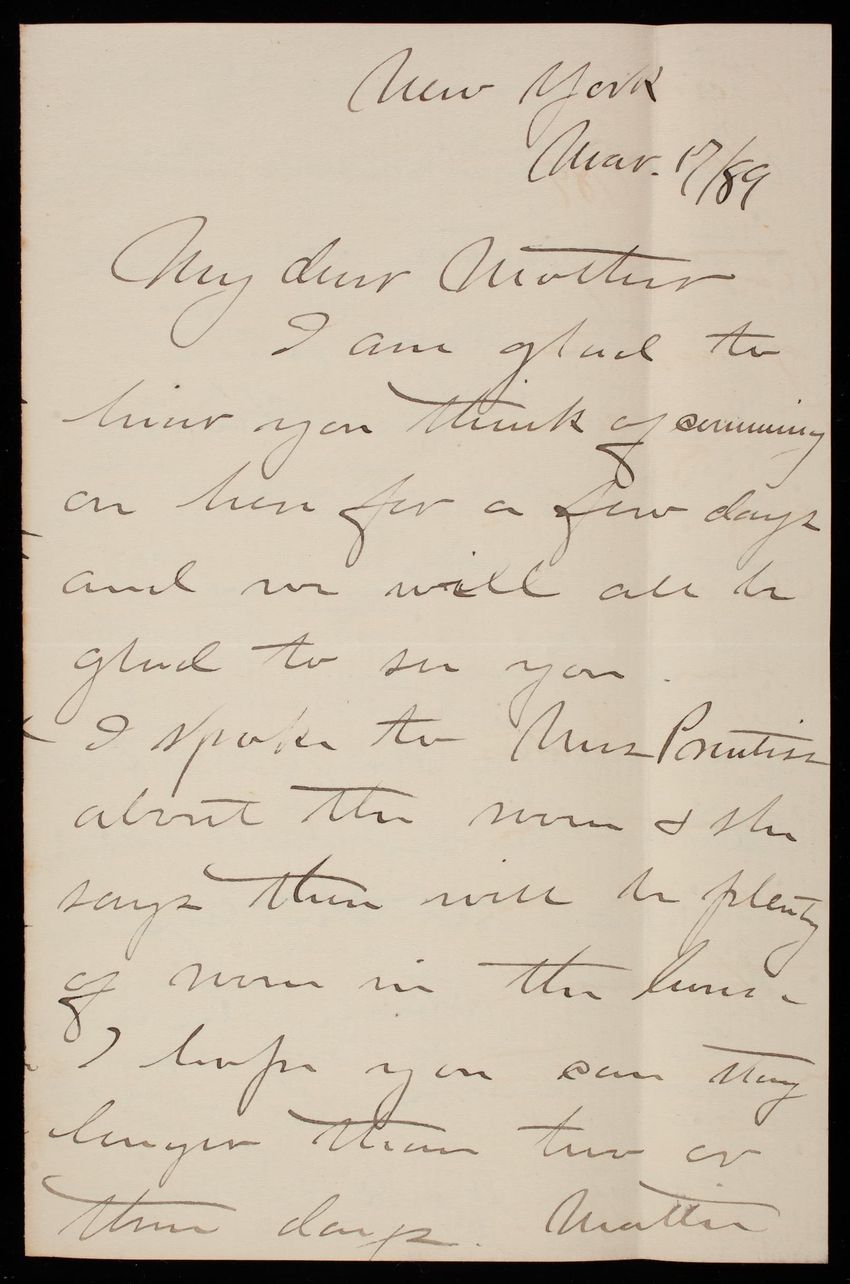 New York
Mar. 17/89
My dear Mother
I am glad to
hear you think of comming
on here for a few days
and we will all be
glad to see you.
I spoke to Miss Prentiss
about the room & she
says there will be plenty
of room in the house
I hope you can stay
longer than two or
three days. Mattie